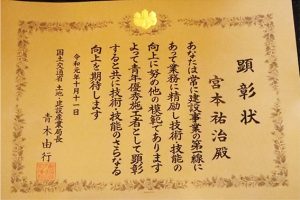 顕彰状
宮本祐治殿
あなたは常に建設事業の第一線に
あって業務に精励し技術・技能の
向上に努め他の模範であります
よって青年優秀施工者として顕彰
すると共に技術・技能のさらなる
向上を期待します
令和元年十月十一日
国土交通省 土地・建設産業局長
青木由行